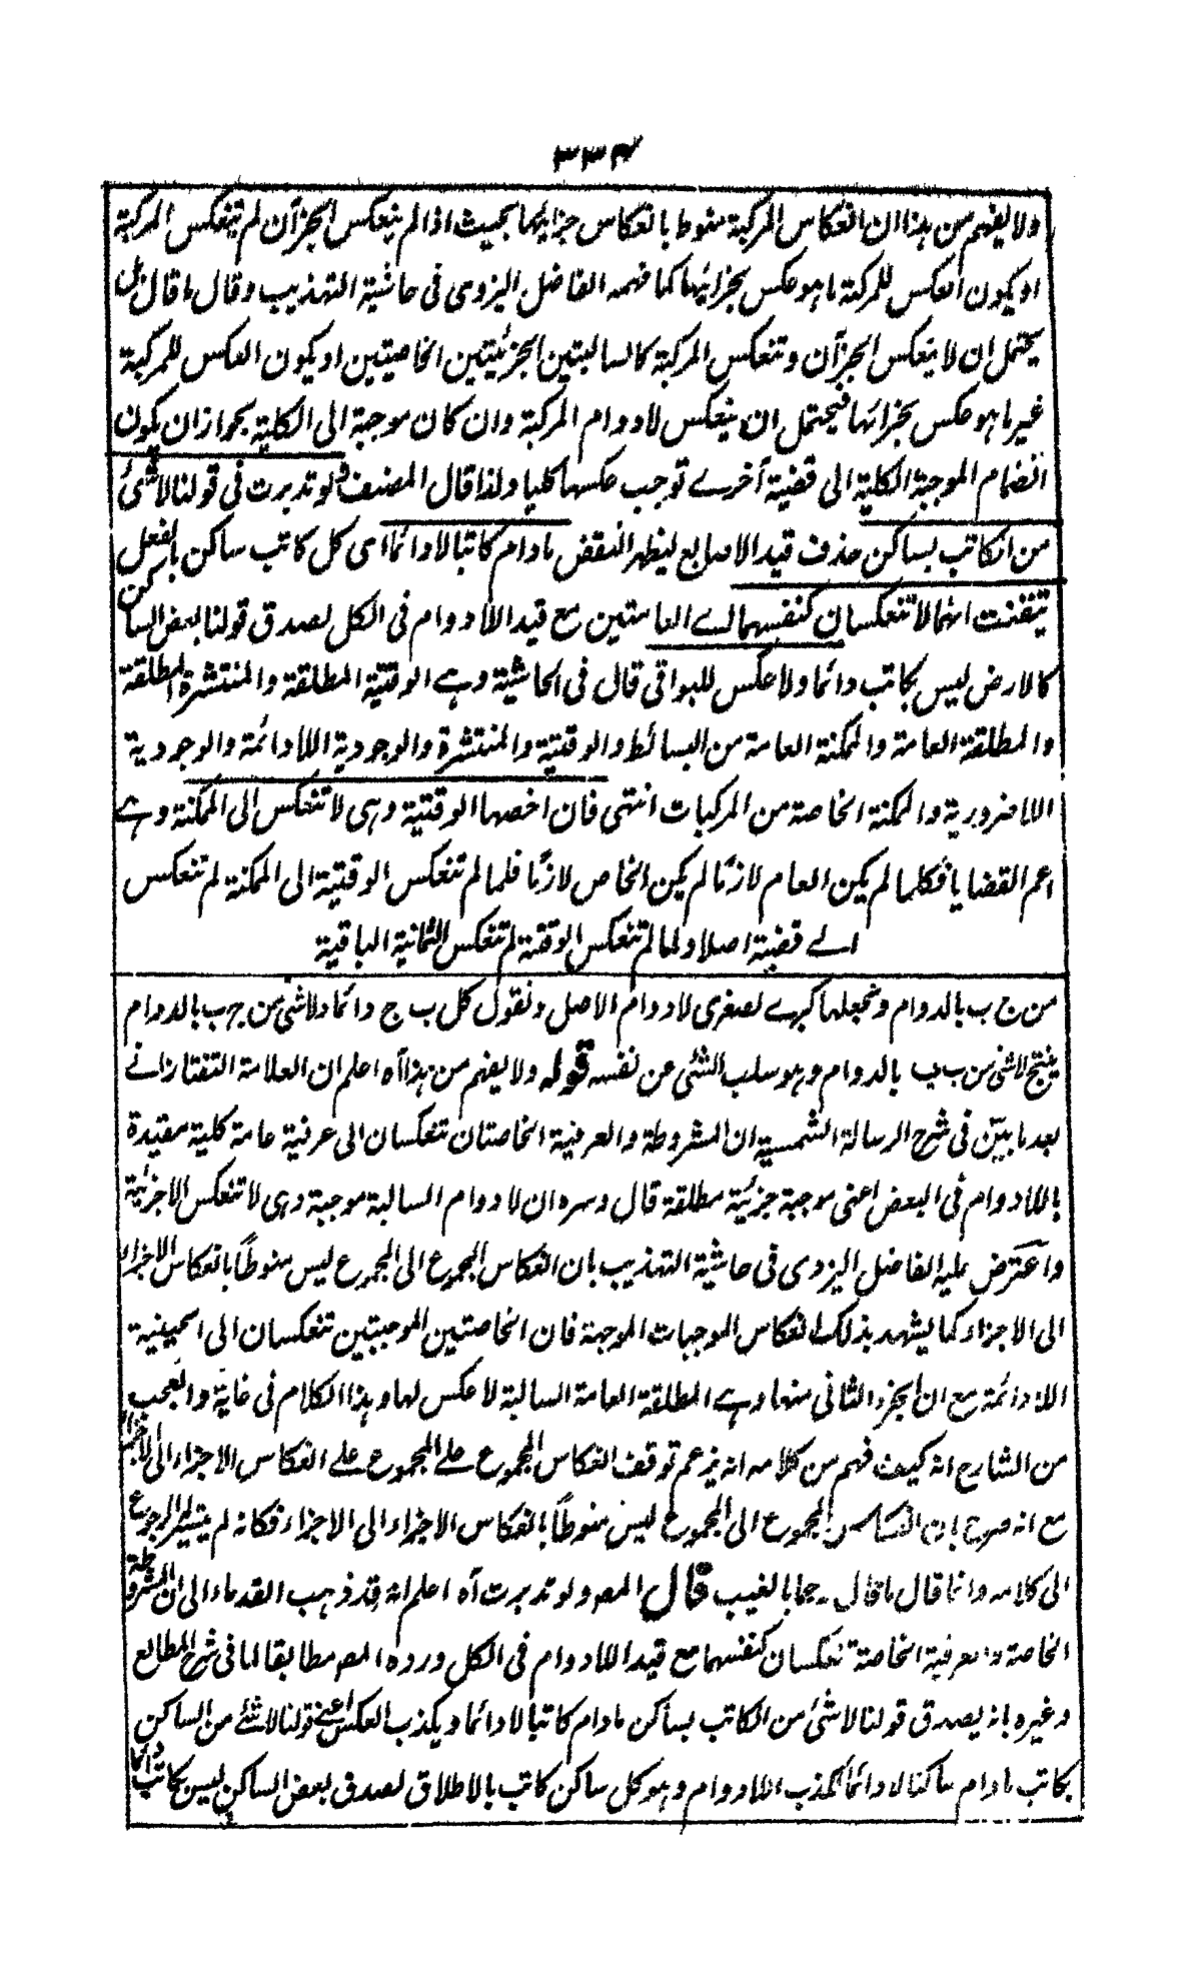 ٣٣٤
ولا يفهم من هذا ان انعكاس المركبة منوط بانعكاس جزائيها بحيث اذا لم ينعكس الجزآن لم تنعكس المركبة
او يكون العكس للمركبة ما هو عكس بجزائيها كما فهمه الفاضل اليزدي في حاشية التهذيب وقال ما قال بل
يحتمل ان لا ينعكس الجزآن وتنعكس المركبة كالسالبتين الجزئيتين الخاصيتين او يكون العكس للمركبة
غير ما هو عكس بجزائها فيحتمل ان ينعكس لادوام المركبة وان كان موجبة الى الكلية بجواز ان يكون
انضمام الموجبة الكلية الى قضية آخرے توجب عكسها كليا ولذا قال المصنف ولو تدبرت في قولنا لا شئ
من الكاتب بساكن حذف قيد الاصابع ليظهر النقض مادام كاتبا لا دائما اى كل كاتب ساكن بالفعل
تيقنت انهما لا تنعكسان كنفسهما الے العامتين مع قيد اللادوام في الكل لصدق قولنا بعض الساكن
كالارض ليس بكاتب دائما ولا عكس للبواقى قال في الحاشية وهے الوقتية المطلقة والمنتشرة المطلقة
والمطلقة العامة والممكنة العامة من البسائط والوقتية والمنتشرة والوجودية اللادائمة والوجودية
اللاضرورية والممكنة الخاصة من المركبات انتهى فان اخصها الوقتية وهى لا تنعكس الى الممكنة وهے
اعم القضايا فكلما لم يكن العام لازما لم يكن الخاص لازما فلما لم تنعكس الوقتية الى الممكنة لم تنعكس
الے قضية اصلا ولما لم تنعكس الوقتية لم تنعكس الثمانية الباقية
من ج ب بالدوام ونجعلها كبرے لصغرى لادوام الاصل ونقول كل ب ج دائما ولا شئ من ج ب بالدوام
ينتج لا شئ من ب ب بالدوام وهو سلب الشئ عن نفسه قوله ولا يفهم من هذا آه اعلم ان العلامة التفتازانے
بعد ما بيّن في شرح الرسالة الشمسية ان المشروطة والعرفية الخاصتان تنعكسان الى عرفية عامة كلية مقيدة
باللادوام في البعض اعنى موجبة جزئية مطلقة قال وسره ان لادوام السالبة موجبة وهى لا تنعكس الا جزئية
واعترض عليه الفاضل اليزدى في حاشية التهذيب بان انعكاس المجموع الى المجموع ليس منوطاً بانعكاس الاجزاء
الى الاجزاء كما يشهد بذلك انعكاس الموجبات الموجهة فان الخاصتين الموجبتين تنعكسان الى الحينية
اللادائمة مع ان الجزء الثانى منها وهے المطلقة العامة السالبة لا عكس لها وهذا الكلام في غاية والعجب
من الشارح انه كيف فهم من كلامه انه يزعم توقف انعكاس المجموع علے المجموع علے انعكاس الاجزاء الى الاجزاء
مع انه صرح بان انعكاس المجموع الى المجموع ليس منوطاً بانعكاس الاجزاء الى الاجزاء فكانه لم يتيسر له الرجوع
الى كلامه وانما قال ما قال رجما بالغيب قال المصـ ولو تدبرت آه اعلم انه قد ذهب القدماء الى ان المشروطة
الخاصة والعرفية الخاصة تنعكسان كنفسهما مع قيد اللادوام في الكل ورده المصـ مطابقا لما في شرح المطالع
وغيره بانه يصدق قولنا لا شئ من الكاتب بساكن مادام كاتبا لا دائما ويكذب العكس اعنے قولنا لا شئے من الساكن
بكاتب مادام ساكنا لا دائماً لكذب اللادوام وهو كل ساكن كاتب بالاطلاق لصدق بعض الساكن ليس بكاتب دائما